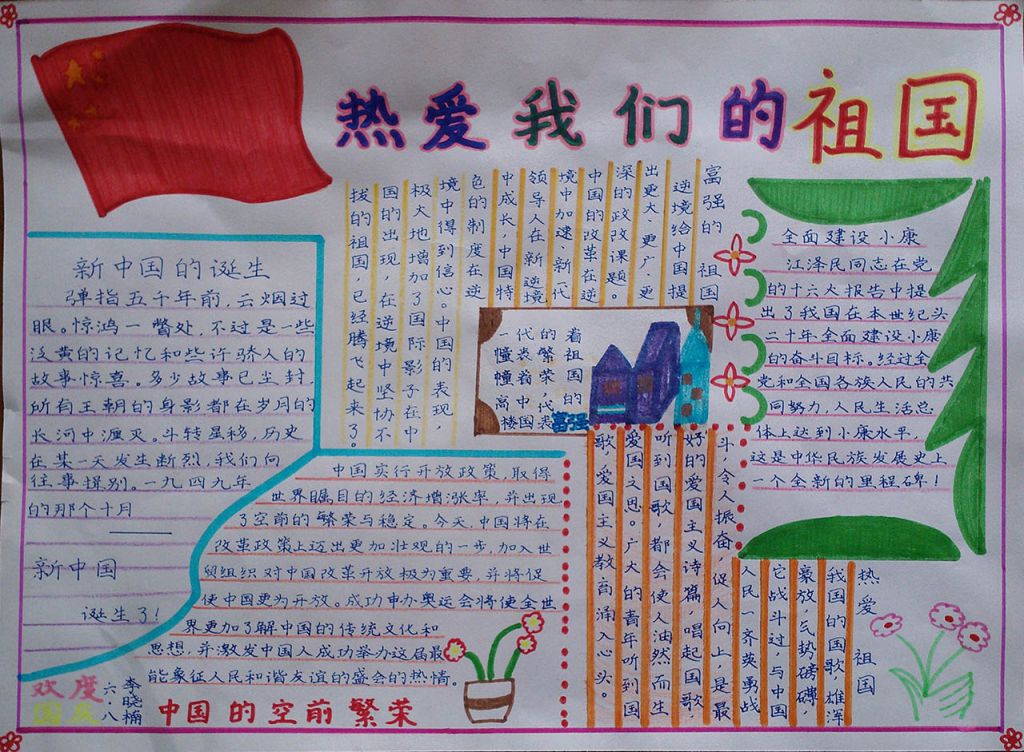 热爱我们的祖国
新中国的诞生
弹指五千年前,云烟过
眼。惊鸿一瞥处,不过是一些
泛黄的记忆和些许骄人的
故事惊喜。多少故事已尘封,
所有王朝的身影都在岁月的
长河中湮灭。斗转星移,历史
在某一天发生断裂,我们向
往事揖别。一九四九年
的那个十月
——
新中国
诞生了!
富强的 祖国
逆境给中国提
出更大、更广、更
深的政改课题。
中国的改革在逆
境中加速、新一代
领导人在新逆境
中成长、中国特
色的制度在逆
境中得到信心。中国的表现,
极大地增加了国际影子在中
国的出现,在逆境中坚协不
拔的祖国,已经腾飞起来了。
着祖国的富强
的繁荣,代表
一代表着中国
幢幢高楼
富强
全面建设小康
江泽民同志在党
的十六大报告中提
出了我国在本世纪头
二十年全面建设小康
的奋斗目标。经过全
党和全国各族人民的共
同努力,人民生活总
体上达到小康水平,
这是中华民族发展史上
一个全新的里程碑!
中国实行开放政策,取得
世界瞩目的经济增涨率,并出现
了空前的繁荣与稳定。今天,中国将在
改革政策上迈出更加壮观的一步,加入世
贸组织对中国改革开放极为重要,并将促
使中国更为开放。成功申办奥运会将使全世
界更加了解中国的传统文化和
思想,并激发中国人成功举办这届最
能象征人民和谐友谊的盛会的热情。
中国的空前繁荣
热爱祖国
我国的国歌雄浑
豪放、气势磅礴,
它战斗过,与中国
人民一齐英勇战
斗,令人振奋,促人向上,是最
好的爱国主义诗篇,唱起国歌,
听到国歌,都会使人油然而生
爱国之思。广大的青年听到国
歌,爱国主义教育涌入心头。
欢度
国庆
六·八
李晓楠